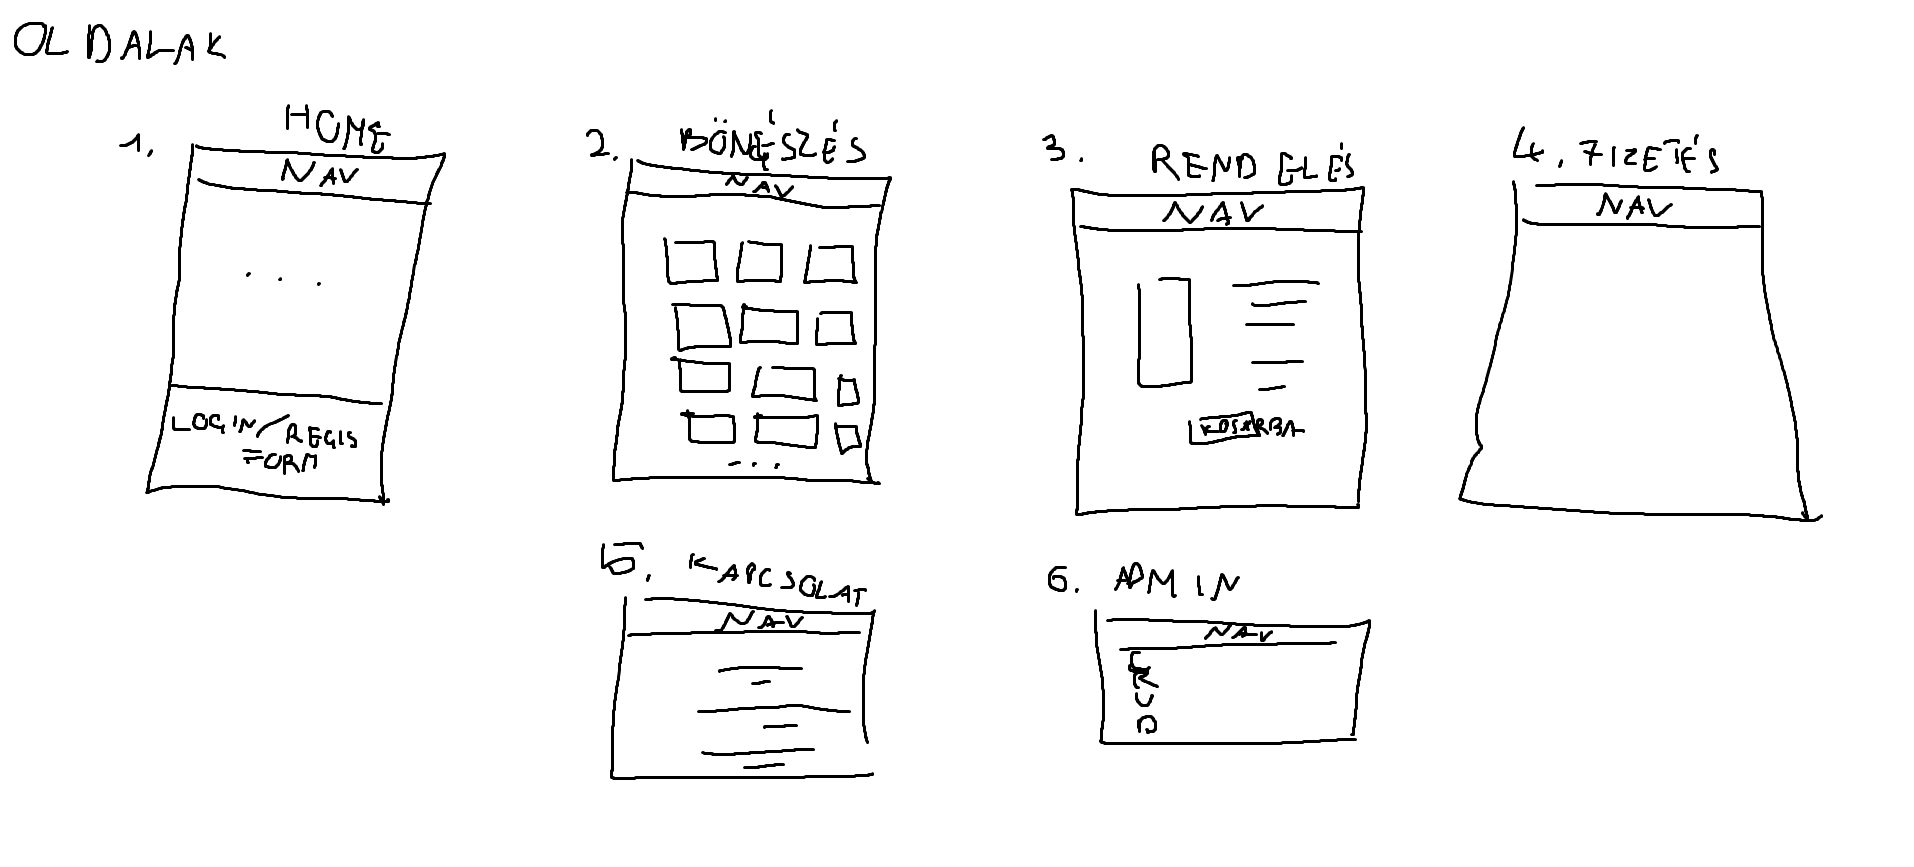 OLDALAK
1. HOME
NAV
...
LOGIN/REGIS
FORM
2. BÖNGÉSZÉS
NAV
...
3. RENDELÉS
NAV
KOSÁRBA
4. FIZETÉS
NAV
5. KAPCSOLAT
NAV
6. ADMIN
NAV
C
R
U
D